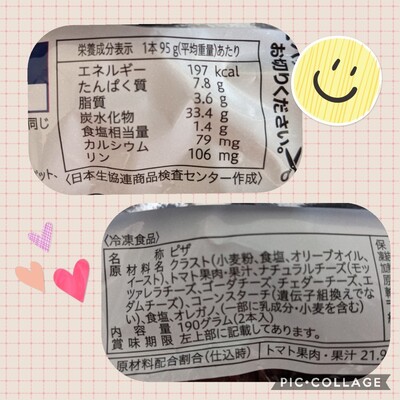 栄養成分表示 1本95g(平均重量)あたり
エネルギー 197 kcal
たんぱく質 7.8 g
脂質 3.6 g
炭水化物 33.4 g
食塩相当量 1.4 g
カルシウム 79 mg
リン 106 mg
〈日本生協連商品検査センター作成〉
お切りください。
同じ
ット、
〈冷凍食品〉
名称 ピザ
原材料名 クラスト(小麦粉、食塩、オリーブオイル、
イースト)、トマト果肉・果汁、ナチュラルチーズ(モッ
ツァレラチーズ、ゴーダチーズ、チェダーチーズ、エ
ダムチーズ)、コーンスターチ(遺伝子組換えでな
い)、食塩、オレガノ、(一部に乳成分・小麦を含む)
内容量 190グラム(2本入)
賞味期限 左上部に記載してあります。
原材料配合割合(仕込時) トマト果肉・果汁 21.9
PIC•COLLAGE